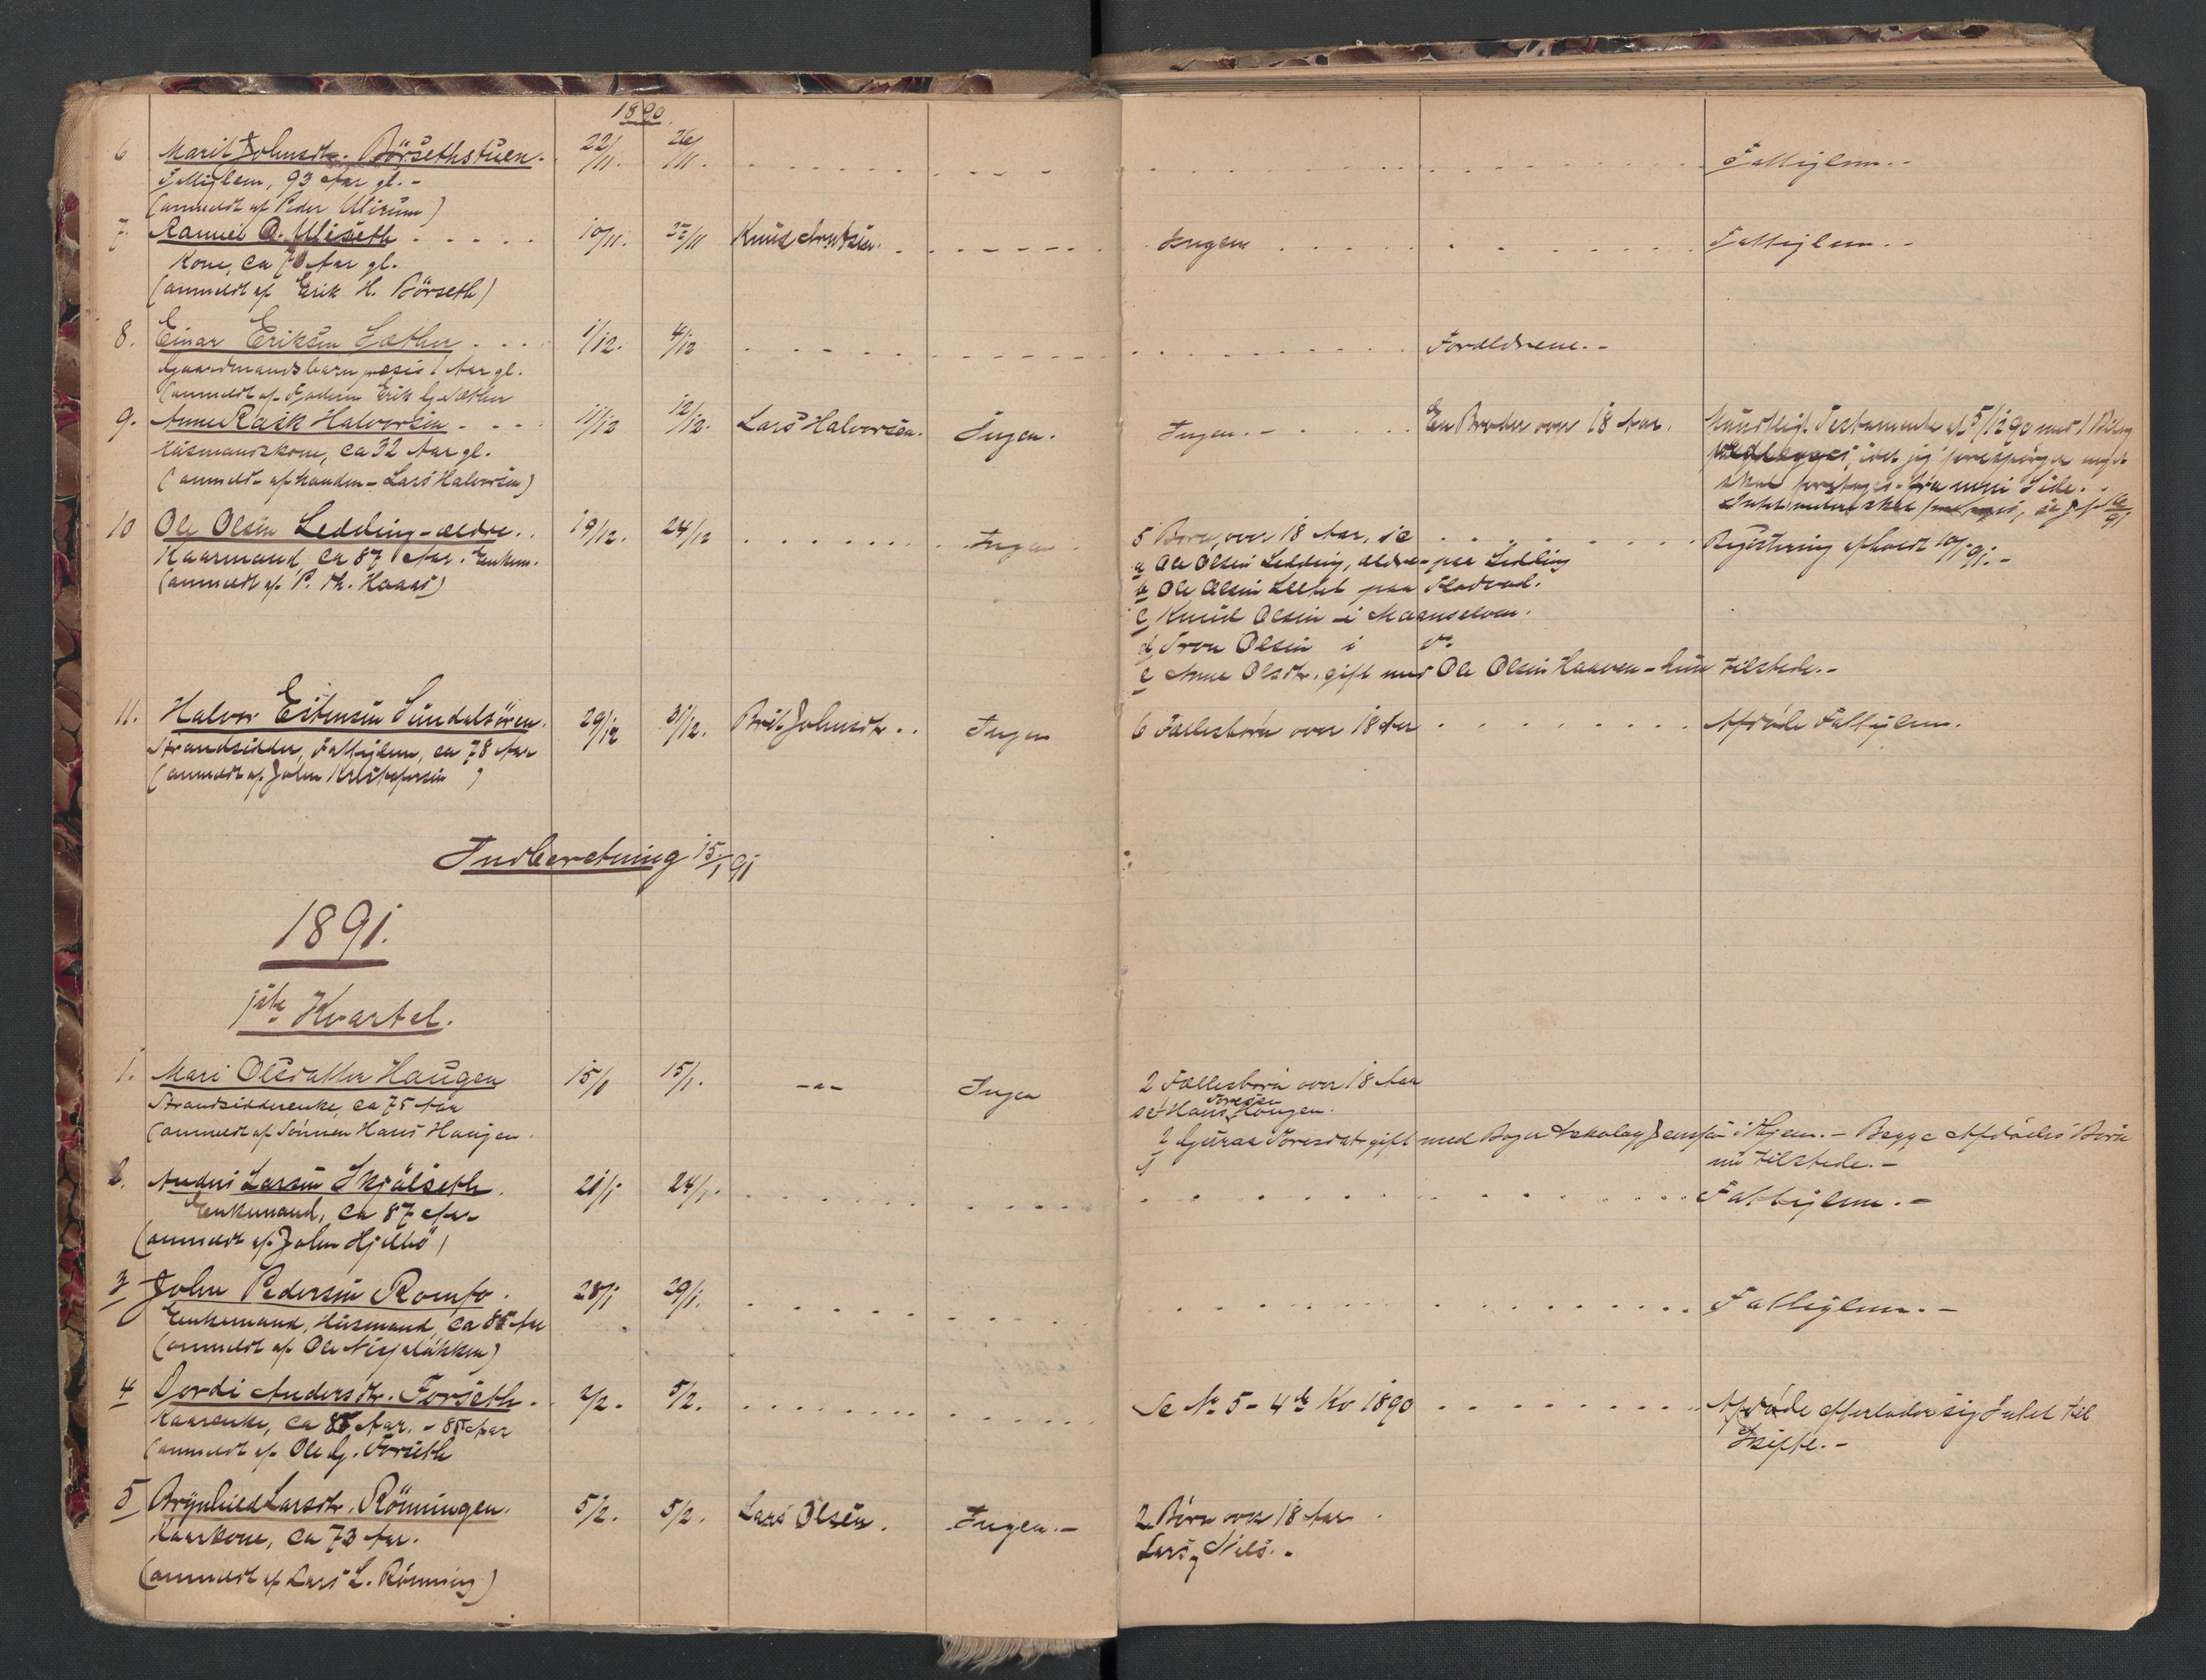 1890.
6 Marit Johnsdtr. Börsethstuen. 22/11. 26/11. Fattiglem.-
Fattiglem, 93 Aar gl.-
(anmeldt af Peder Ulvund)
7. Ranveil O. Uliseth 10/11. 27/11 Knud Knutsen. Ingen Fattiglem.-
Kone, ca 70 Aar gl.
(anmeldt af Erik H. Börseth)
8. Einar Eriksen Sæther 1/12. 4/12 Foreldrene.-
Gaardmandsbarn 1 Aar gl.
(anmeldt af Faderen Erik G. Sæther
9. Anne Rask Halvorsen 11/12 12/12. Lars Halvorsen. Ingen. Ingen.- En Broder over 18 Aar. Mundtligt Testamente af 5/12 90 med 1 Bilag
Husmandskone, ca 32 Aar gl. idet jeg forespörger
(anmeldt af Manden - Lars Halvorsen) skal foretages fra min Side.-
10 Ole Olsen Ledding - ældre. 19/12. 24/12 Ingen 5 Børn, over 18 Aar, se Registrering afholdt 10/1 91.-
Kaarmand, ca 87 Aar. Enkem. a Ole Olsen Ledding, ældre - paa Ledding
(anmeldt af P. Th. Haaas) b Ole Olsen paa Flodvad.
c Knud Olsen - i Maanselven.
d Tron Olsen i do
e Anne Olsdtr. gift med Ole Olsen Haaven - hun tilstede.-
11. Halvor Estensen Sundalsören. 29/12 31/12. Brit Johnsdtr. Ingen 6 Fællesbørn over 18 Aar Afdøde Fattiglem.
Strandsidder, Fattiglem, ca 78 Aar
(anmeldt af John Kristofersen)
Indberetning 15/1 91
1891.
1ste Kvartal.
1. Mari Olsdatter Haugen 15/1 15/1. -"- Ingen 2 Fællesbørn over 18 Aar
Strandsidderenke, ca 75 Aar se 1 Hans Toresen Haugen.
(anmeldt af Sönnen Hans Haugen. 2 Guraa Toresdatr gift med i Hjem.- Begge Afdødes Børn
nu tilstede.-
2. Anders Larsen Skjölseth. 21/1 24/1. Fattiglem.-
Enkemand, ca 87 Aar
(anmeldt af John Hjelbö)
3 John Pedersen Romfo. 28/1 29/1. Fattiglem.-
Enkemand, Husmand, ca 85 Aar
(anmeldt af Ole)
4 Dordi Andersdtr. Forseth. 2/2. 5/2. Se No 5 - 4de Kv 1890 Afdøde efterlader sig Intet til
Kaarenke, ca 85 Aar. - 85 Aar Skifte.-
(anmeldt af Ole G. Forseth
5 Brynhild Larsdtr. Rönningen. 5/2. 5/2. Lars Olsen. Ingen.- 2 Børn over 18 Aar
Kaarkone, ca 73 Aar. Lars og Nils.-
(anmeldt af Lars L. Rönning)